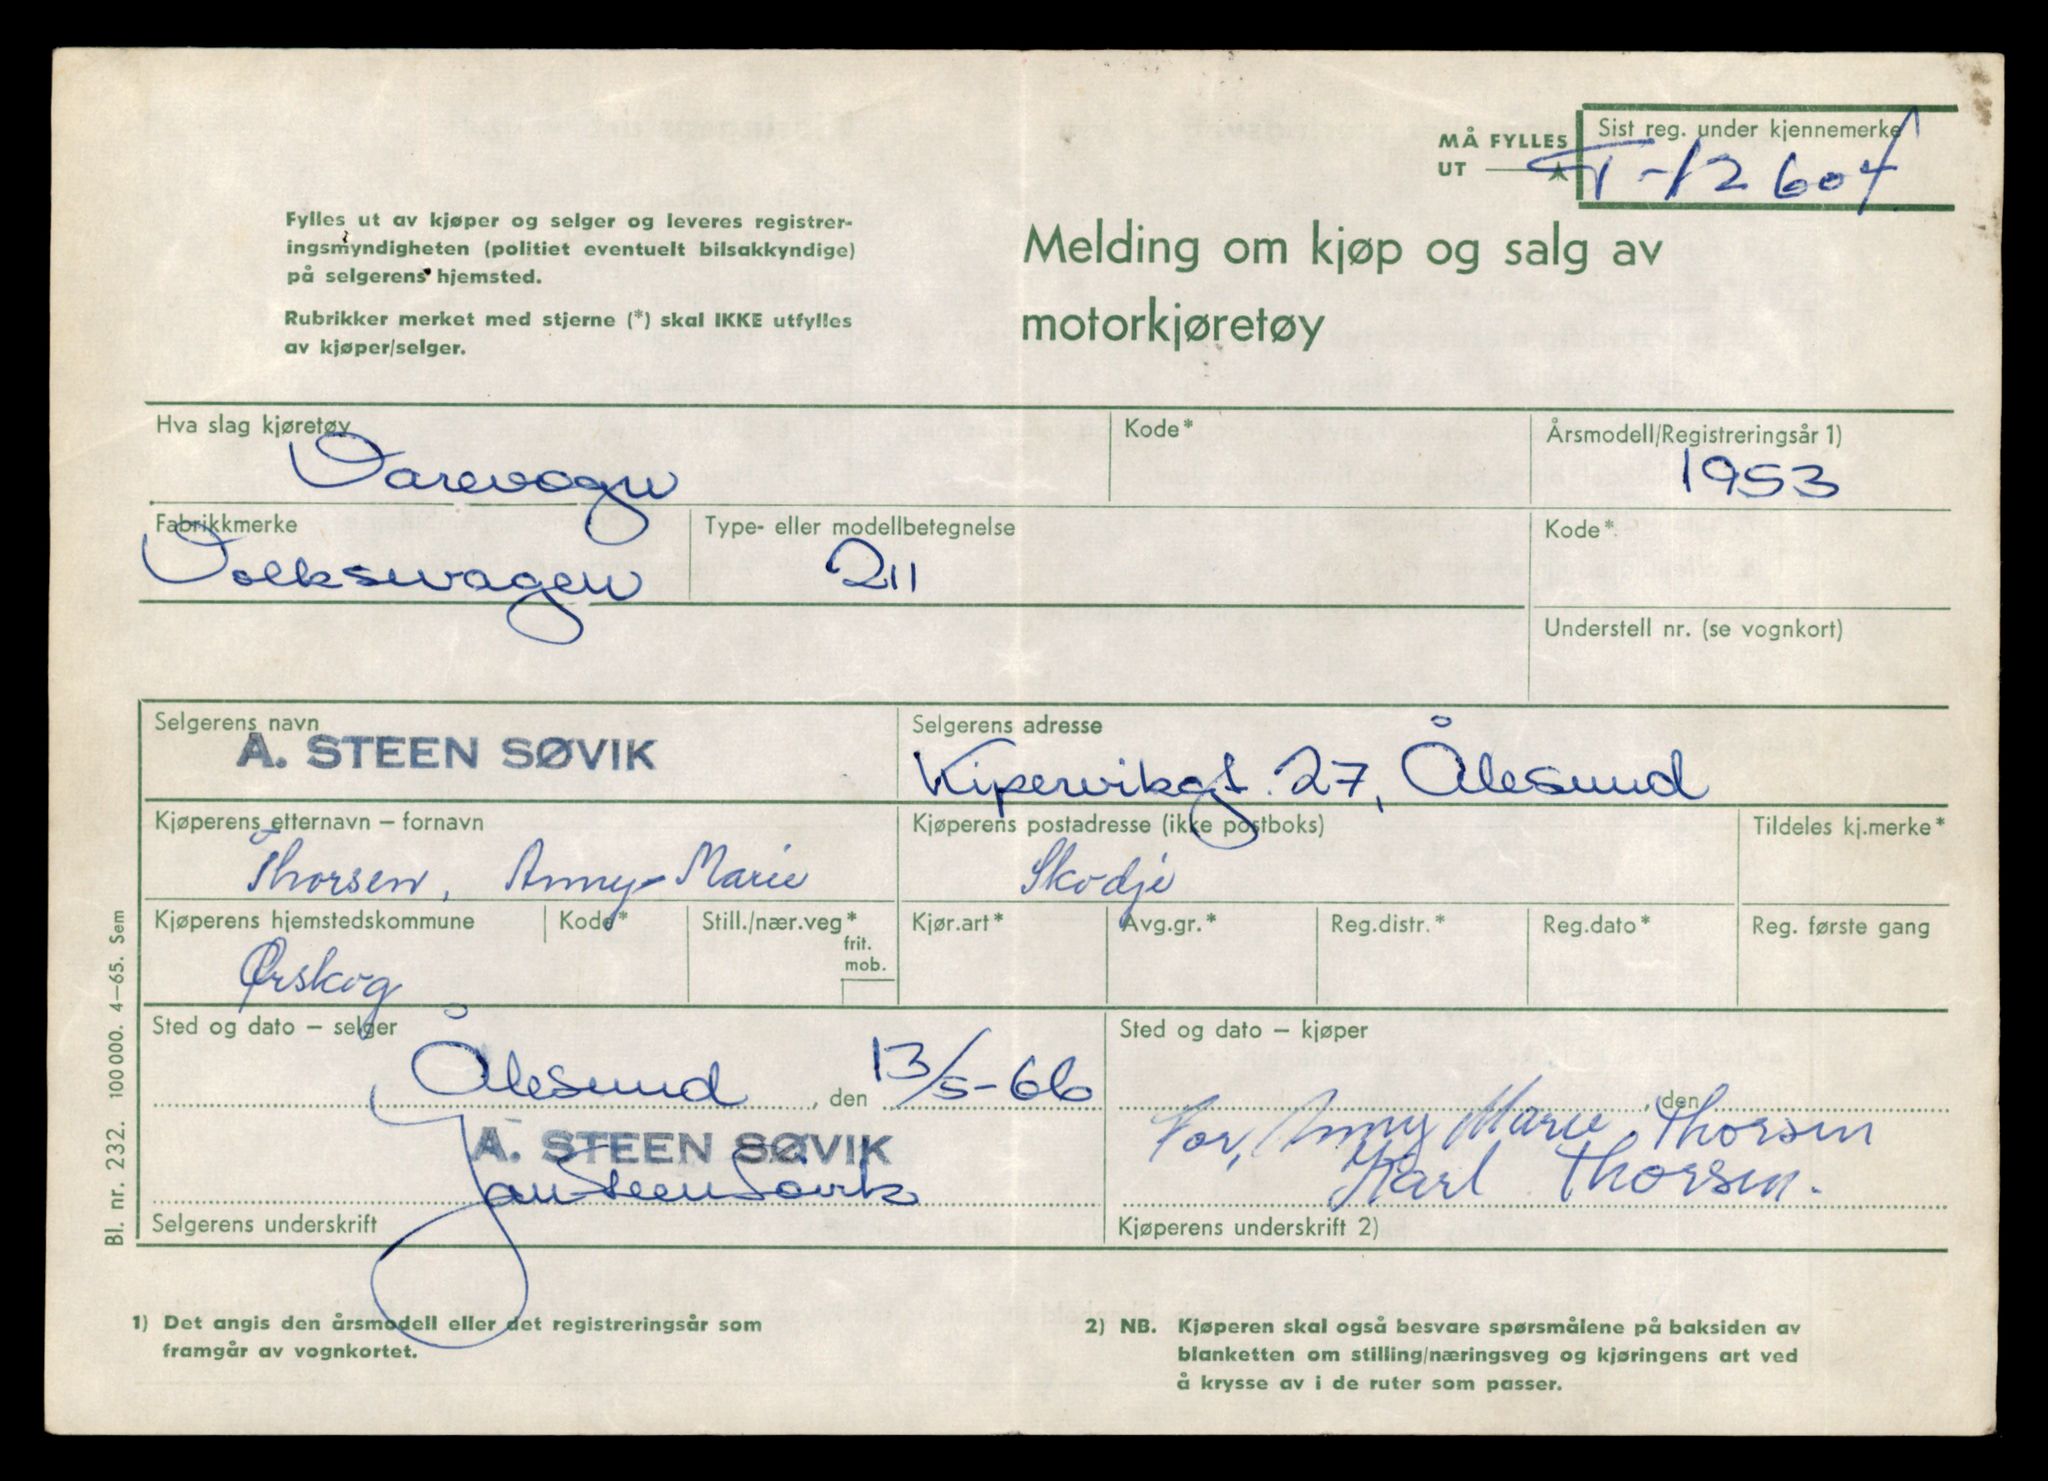 MÅ FYLLES
UT
Sist reg. under kjennemerke
T-12604
Fylles ut av kjøper og selger og leveres registrer-
ingsmyndigheten (politiet eventuelt bilsakkyndige)
på selgerens hjemsted.
Rubrikker merket med stjerne (*) skal IKKE utfylles
av kjøper/selger.
Melding om kjøp og salg av
motorkjøretøy
Hva slag kjøretøy
Varevogn
Kode*
Årsmodell/Registreringsår 1)
1953
Fabrikkmerke
Volkswagen
Type- eller modellbetegnelse
211
Kode*
Understell nr. (se vognkort)
Selgerens navn
A. STEEN SØVIK
Selgerens adresse
Kipervikgt. 27, Ålesund
Kjøperens etternavn – fornavn
Thorsen, Anny-Marie
Kjøperens postadresse (ikke postboks)
Skodje
Tildeles kj.merke*
Kjøperens hjemstedskommune
Ørskog
Kode*
Still./nær.veg*
frit.
mob.
Kjør.art*
Avg.gr.*
Reg.distr.*
Reg.dato*
Reg. første gang
Sted og dato – selger
Ålesund, den 13/5-66
A. STEEN SØVIK
Jan Steen Søvik
Selgerens underskrift
Sted og dato – kjøper
, den
For, Anny Marie Thorsen
Karl Thorsen.
Kjøperens underskrift 2)
Bl. nr. 232. 100 000. 4–65. Sem
1) Det angis den årsmodell eller det registreringsår som
framgår av vognkortet.
2) NB. Kjøperen skal også besvare spørsmålene på baksiden av
blanketten om stilling/næringsveg og kjøringens art ved
å krysse av i de ruter som passer.